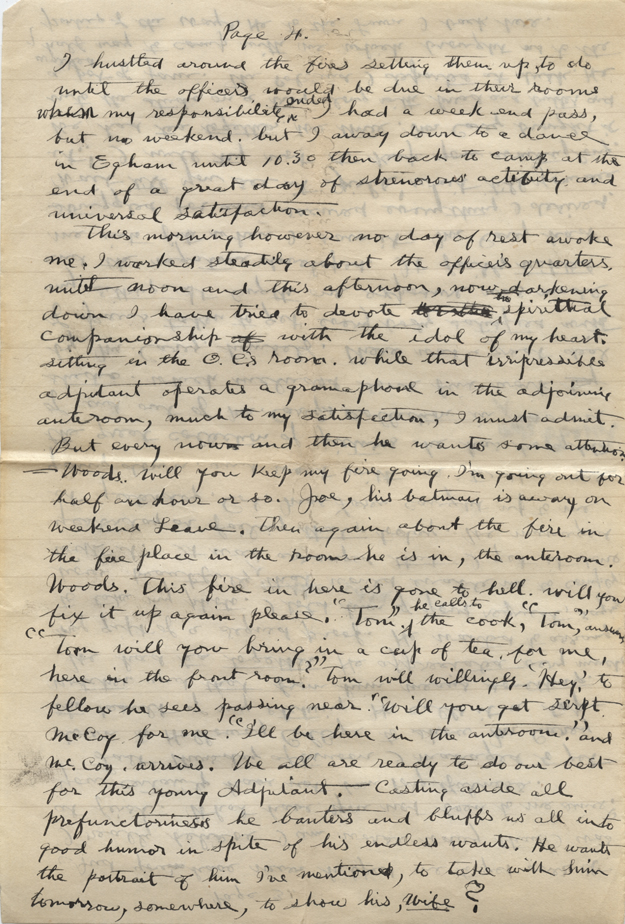 Page 4.
I hustled around the fires setting them up, to do
until the officers would be due in their rooms
when my responsibility ended I had a week-end pass,
but no weekend. but I away down to a dance
in Egham until 10.30 then back to camp at the
end of a great day of strenuous activity and
universal satisfaction.
This morning however no day of rest awoke
me. I worked steadily about the officer's quarters.
until noon and this afternoon, now darkening
down I have tried to devote the spiritual
companionship of with the idol of my heart.
sitting in the O.C.s room. while that irripressible
adjutant operates a gramaphone in the adjoining
anteroom, much to my satisfaction, I must admit.
But every now and then he wants some attention
— Woods. will you keep my fire going. I'm going out for
half an hour or so. Joe, his batman is away on
weekend Leave. Then again about the fire in
the fire place in the room he is in, the anteroom.
Woods. This fire in here is gone to hell. will you
fix it up again please. "Tom", he calls to the cook, "Tom,"
"Tom will you bring in a cup of tea. for me,
here in the front room?" Tom will willingly. "Hey!" to
fellow he sees passing near. "Will you get Sergt
McCoy for me. "I'll be here in the anteroom." and
Mc.Coy. arrives. We all are ready to do our best
for this young Adjutant. — Casting aside all
prefunctoriness he banters and bluffs us all into
good humor in spite of his endless wants. He wants
the portrait of him I've mentioned, to take with him
tomorrow, somewhere, to show his, Wife ?